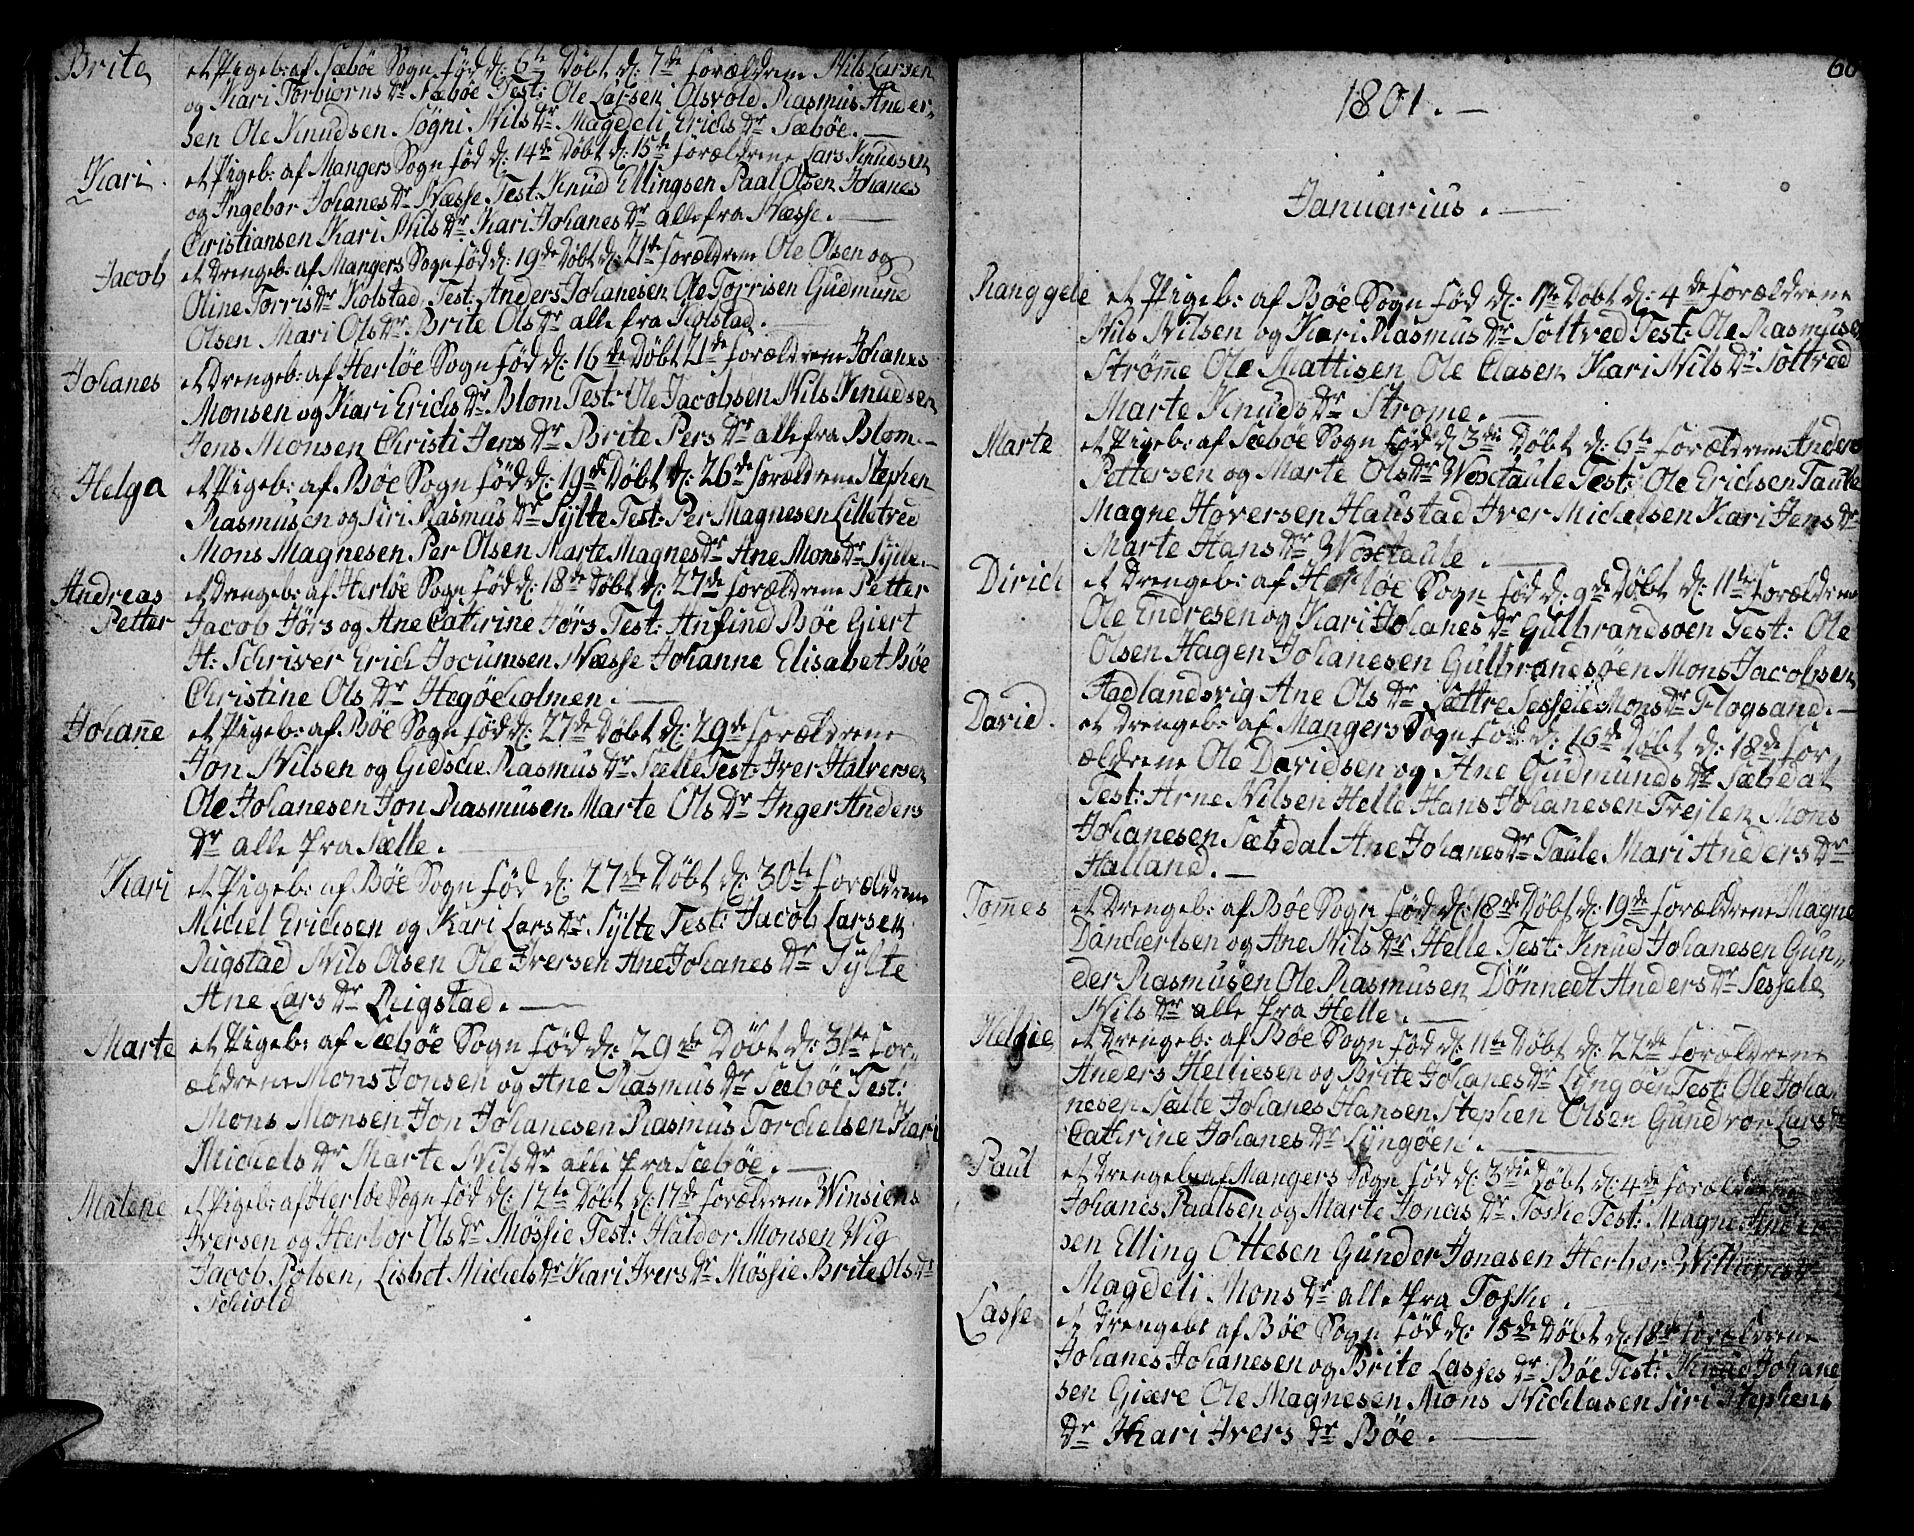 Brite et Pigeb: af Sæbøe Sogn født d: 6te Døbt d: 7de forældrene Nils Larsen
og Kari Torbiørns Dr Sæbøe Test: Ole Larsen Olsvold Rasmus Ander-
sen Ole Knudsen Søgni Nils Dr Magdeli Erichs Dr Sæbøe. —
Kari et Pigeb: af Mangers Sogn født d: 14de Døbt d: 15de forældrene Lars Knudsen
og Ingebor Johanes Dr Næsse Test: Knud Ellingsen Paal Olsen Johanes
Christiansen Kari Nils Dr Kari Johanes Dr alle fra Næsse. —
Jacob et Drengeb: af Mangers Sogn født d: 19de Døbt d: 21de forældrene Ole Olsen og
Oline Torris Dr Kolstad Test: Anders Johanesen Ole Torrisen Gudmund
Olsen Mari Ols Dr Brite Ols Dr alle fra Kolstad. —
Johanes et Drengeb: af Herløe Sogn født d: 16de Døbt 21de forældrene Johanes
Monsen og Kari Erichs Dr Blom Test: Ole Jacobsen Nils Knudsen
Jens Monsen Christi Jens Dr Brite Pers Dr alle fra Blom. —
Helga et Pigeb: af Bøe Sogn født d: 19de Døbt d: 26de forældrene Stephen
Rasmusen og Siri Rasmus Dr Sylte Test: Per Magnesen Lilletved
Mons Magnesen Per Olsen Marte Magnes Dr Ane Mons Dr Sylte. —
Andreas Petter et Drengeb: af Herløe Sogn født d: 18de Døbt d: 27de forældrene Petter
Jacob Jørs og Ane Cathrine Jørs Test: Anfind Bøe Giert
H: Schriver Erich Jocumsen Næsse Johanne Elisabet Bøe
Christine Ols Dr Høgøeholmen. —
Johan̄e et Pigeb: af Bøe Sogn født d: 27de Døbt d: 29de forældrene
Jon Nilsen og Gidsche Rasmus Dr Sælle Test: Iver Halversen
Ole Johanesen Jon Rasmusen Marte Ols Dr Inger Anders
Dr alle fra Sælle. —
Kari et Pigeb: af Bøe Sogn født d: 27de Døbt d: 30te forældrene
Michel Erichsen og Kari Lars Dr Sylte Test: Jacob Larsen
Rigstad Nils Olsen Ole Iversen Ane Johanes Dr Sylte
Ane Lars Dr Rigstad. —
Marte et Pigeb: af Sæbøe Sogn født d: 29de Døbt d: 31te for-
ældrene Mons Jonsen og Ane Rasmus Dr Sæbøe Test:
Mons Monsen Jon Johanesen Rasmus Torchelsen Kari
Michels Dr Marte Nils Dr alle fra Sæbøe. —
Malene et Pigeb: af Herløe Sogn født d: 12te Døbt d: 17de forældrene Winsiens
Iversen og Herbor Ols Dr Møssie Test: Haldor Monsen Wig
Jacob Polsen, Lisbet Michels Dr Kari Ivers Dr Møssie Brite Ols Dr
Schiold
1801. —
Januarius. —
Ranggele et Pigeb: af Bøe Sogn født d: 1te Døbt d: 4de forældrene
Nils Nilsen og Kari Rasmus Dr Soltved Test: Ole Rasmusen
Strøm̄e Ole Mattisen Ole Clasen Kari Nils Dr Soltved
Marte Knuds Dr Strøme. —
Marte et Pigeb: af Sæbøe Sogn født d: 3die Døbt d: 6te forældrene Anders
Pettersen og Marte Ols Dr Woxtaule Test: Ole Erichsen Taule
Magne Hoversen Haustad Iver Michelsen Kari Jens Dr
Marte Hans Dr Woxtaule. —
Dirich et Drengeb: af Herløe Sogn født d: 9de Døbt d: 11te forældrene
Ole Endresen og Kari Johanes Dr Gulbrandsøen Test: Ole
Olsen Hagen Johanesen Gulbrandsøen Mons Jacobsen
Hadlandsvig Ane Ols Dr Sættre Sessele Mons Dr Flogsand. —
David. et Drengeb: af Mangers Sogn født d: 16de Døbt d: 18de for-
ældrene Ole Davidsen og Ane Gudmunds Dr Sæbdal
Test: Arne Nilsen Helle Hans Johanesen Treilen Mons
Johanesen Sæbdal Ane Johanes Dr Taule Mari Anders Dr
Halland. —
Tom̄es et Drengeb: af Bøe Sogn født d: 18de Døbt d: 19de forældrene Magne
Dancherlsen og Ane Nils Dr Helle Test: Knud Johanesen Gun-
der Rasmusen Ole Rasmusen Dønnedt Anders Dr Sessele
Nils Dr alle fra Helle. —
Hellgie et Drengeb: af Bøe Sogn født d: 11te Døbt d: 22de forældrene
Anders Helliesen og Brite Johanes Dr Lyngøen Test: Ole Joha-
nesen Sælte Johanes Hansen Stephen Olsen Gundvor Lars Dr
Cathrine Johanes Dr Lyngøen. —
Paul et Drengeb: af Mangers Sogn født d: 3die Døbt d: 4de forældrene
Johanes Paulsen og Marte Jonas Dr Toske Test: Magne Ander-
sen Elling Ottesen Gunder Jonasen Herbor Willums Dr
Magdeli Mons Dr alle fra Toske. —
Lasse et Drengeb: af Bøe Sogn født d: 15de Døbt d: 18de forældrene
Johanes Johanesen og Brite Lasses Dr Bøe Test: Knud Johane-
sen Giære Ole Magnesen Mons Nichlasen Siri Stephens
Dr Kari Ivers Dr Bøe. —